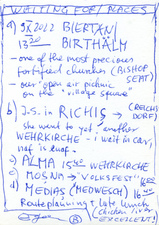 WAITING FOR / PLACES
a) 9X2022 BIERTAN
13 20 BIRTHÄLM
- one of the most precious
fortified churches (BISHOP
SEAT)
- our "open air picnic
on the "village square"
b) J.S. in RICHIS → (REICHES
DORF)
she went to yet "another
WEHRKIRCHE - i wait in car,
c) ALMA 15 40 WEHRKIRCHE
c) MOSNA → "VOLKSFEST" 16
d) MEDIAS (MEDWESCH)
Routeplanning + late lunch
(chicken liver
EXCELLENT!)